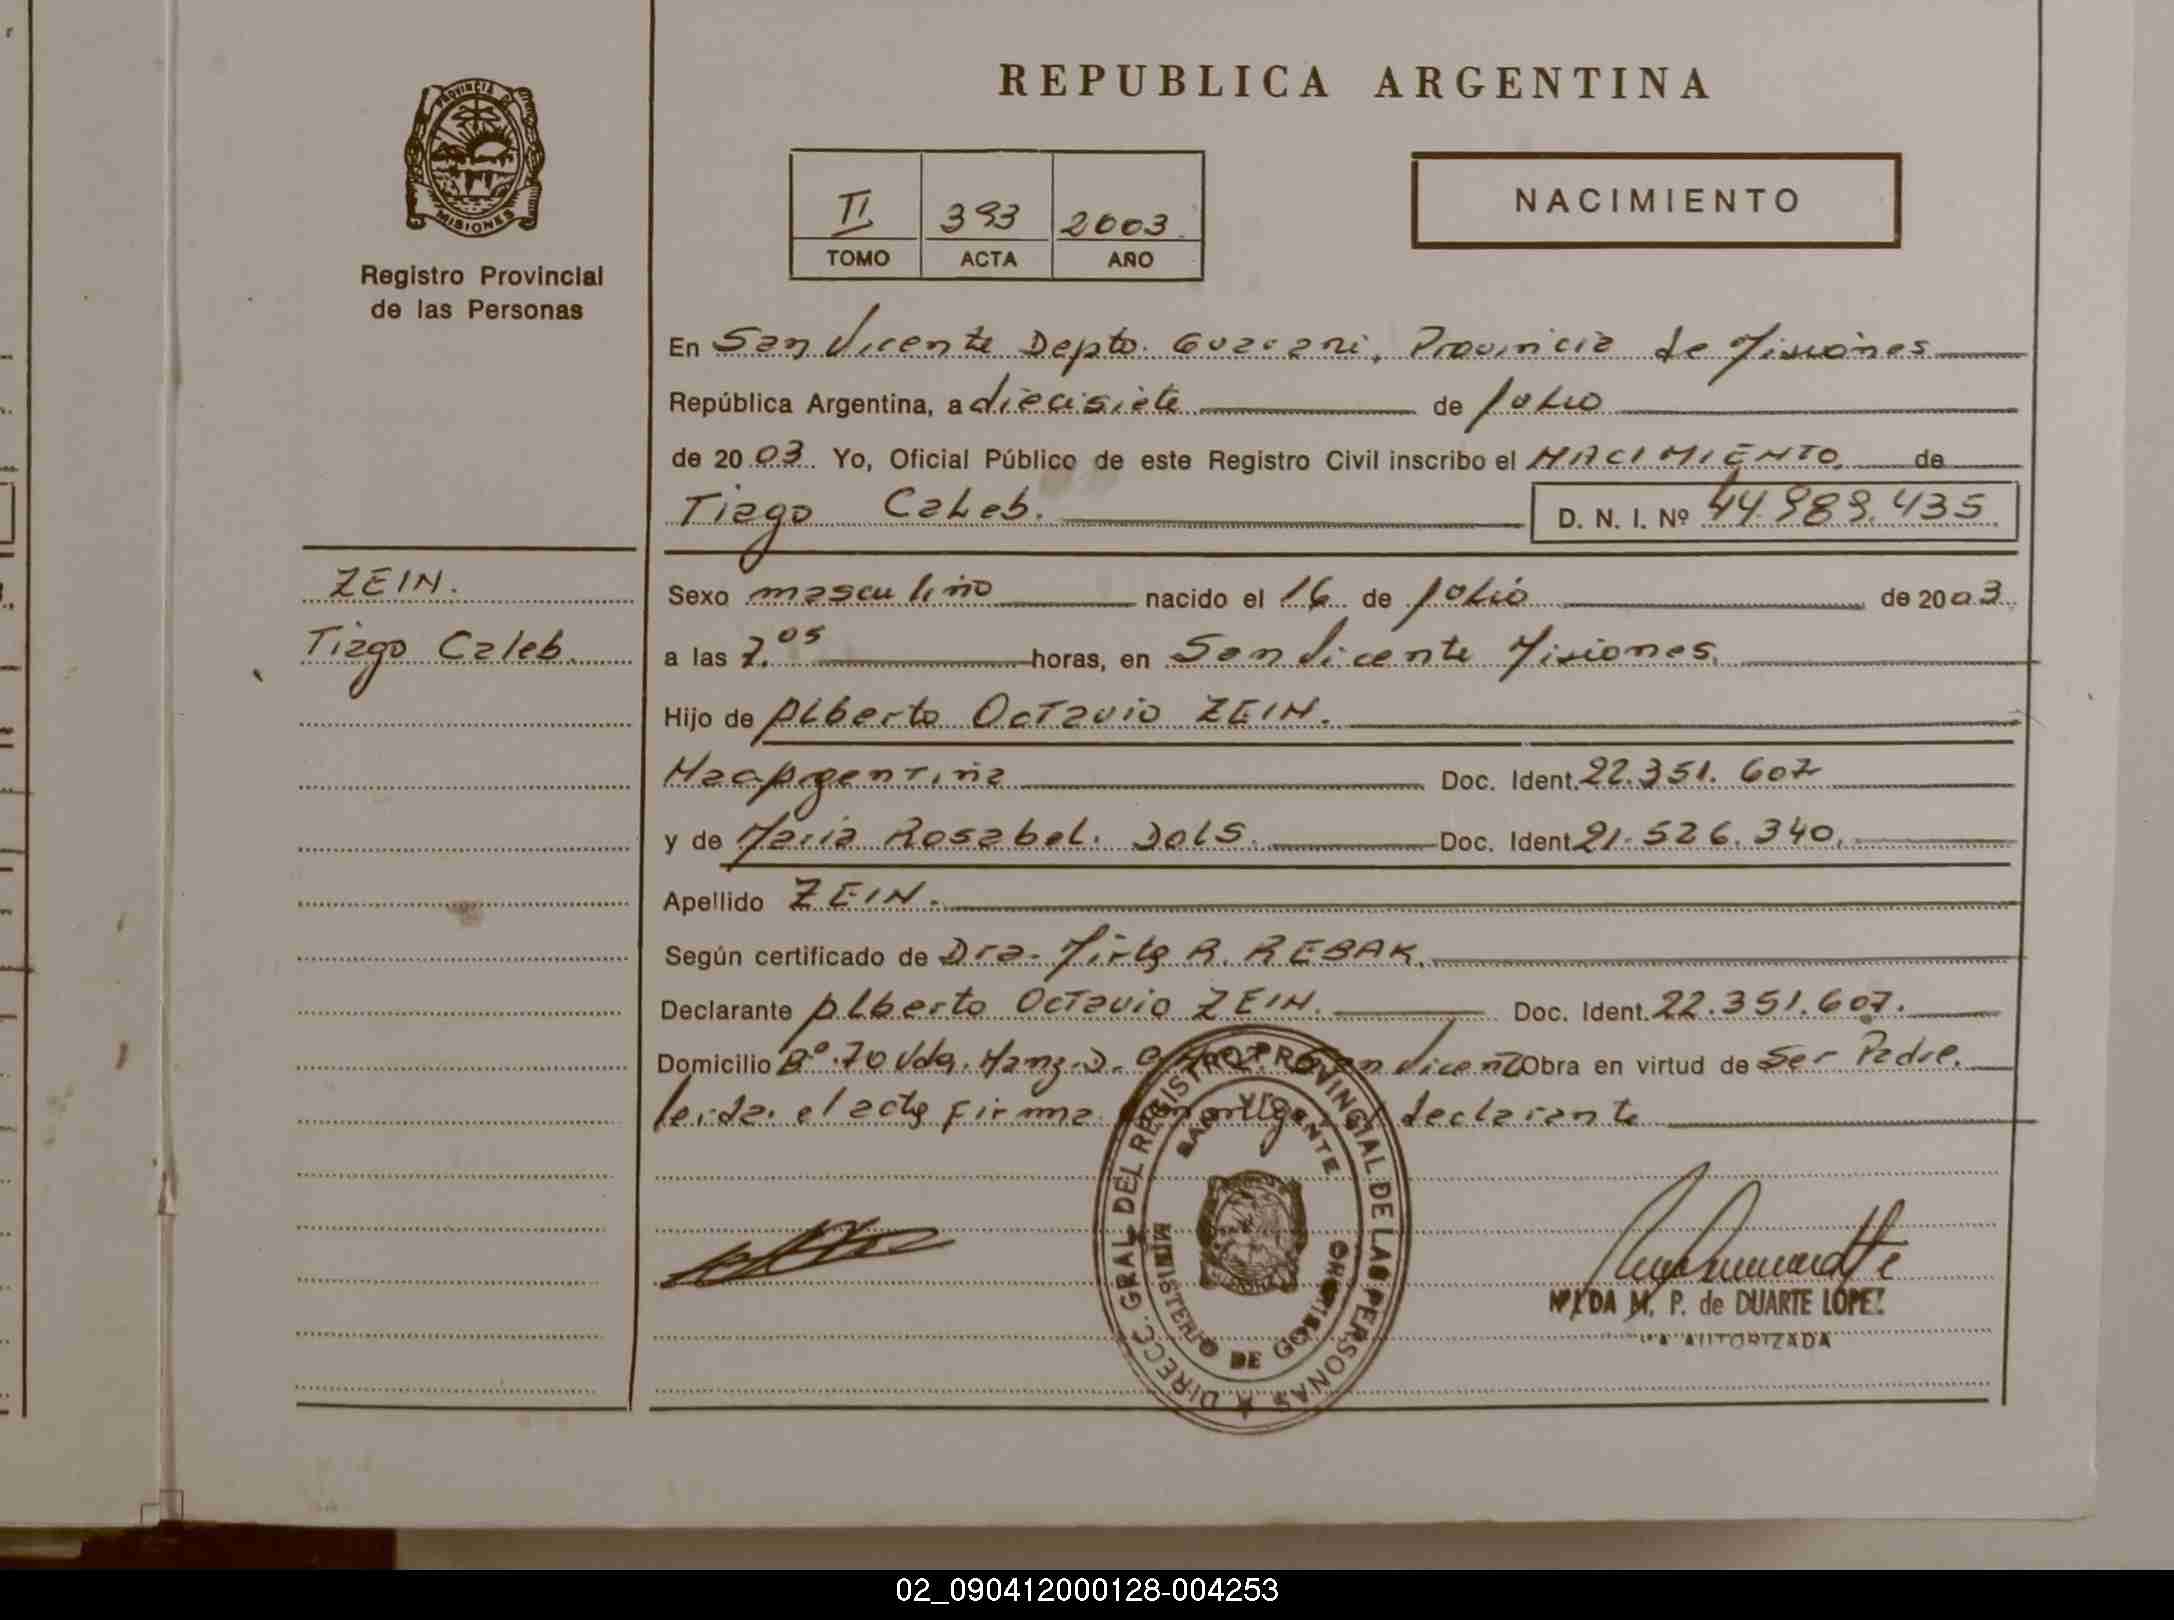 REPUBLICA ARGENTINA
PROVINCIA DE
MISIONES
Registro Provincial
de las Personas
II 393 2003
TOMO ACTA AÑO
NACIMIENTO
En San Vicente Depto. Guarani, Provincia de Misiones
República Argentina, a diecisiete de Julio
de 2003 Yo, Oficial Público de este Registro Civil inscribo el NACIMIENTO de
Tiago Caleb. D. N. I. Nº 44.989.435
ZEIN.
Tiago Caleb.
Sexo masculino nacido el 16 de Julio de 2003
a las 7.05 horas, en San Vicente Misiones.
Hijo de Alberto Octavio ZEIN.
Nac. Argentina Doc. Ident. 22.351.607
y de Maria Rosabel. DOLS. Doc. Ident 21.526.340.
Apellido ZEIN.
Según certificado de Dra. Mirta R. REBAK.
Declarante Alberto Octavio ZEIN. Doc. Ident. 22.351.607.
Domicilio Bº 70 Vdas. Manz. D. San Vicente Obra en virtud de Ser Padre.
leida el acta firma conmigo el declarante
DIRECC. GRAL. DEL REGISTRO PROVINCIAL DE LAS PERSONAS
SAN VICENTE
MINISTERIO DE GOBIERNO
M. P. de DUARTE LOPEZ
AUTORIZADA
02_090412000128-004253